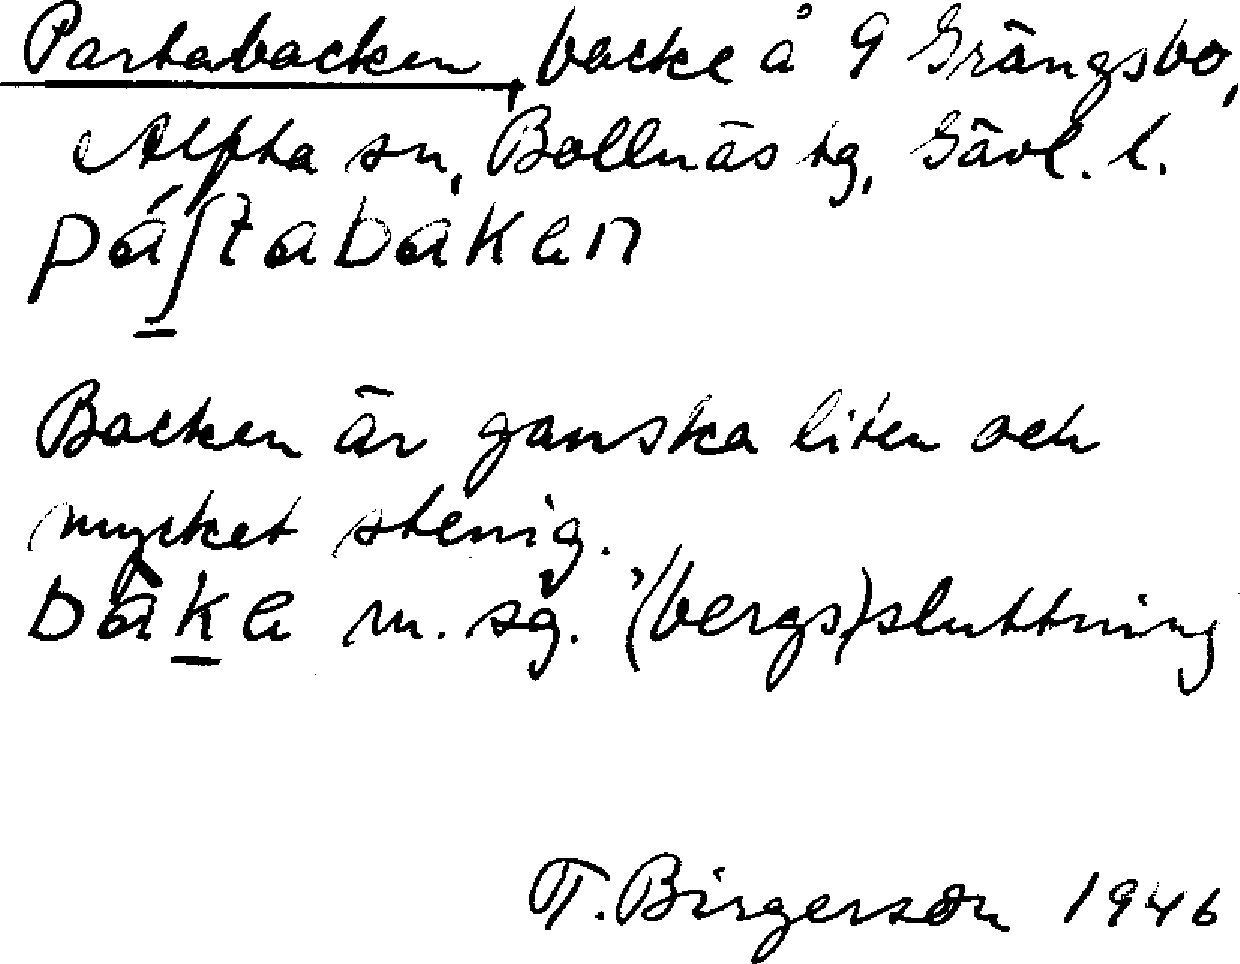 Partabacken, backe å 9 Grängsbo,
Alfta sn, Bollnäs tg, Gävl. l.
páʃtabakən
Backen är ganska liten och
mycket stenig.
bàkə m. sg. '(bergs)sluttning
T. Birgerson 1946